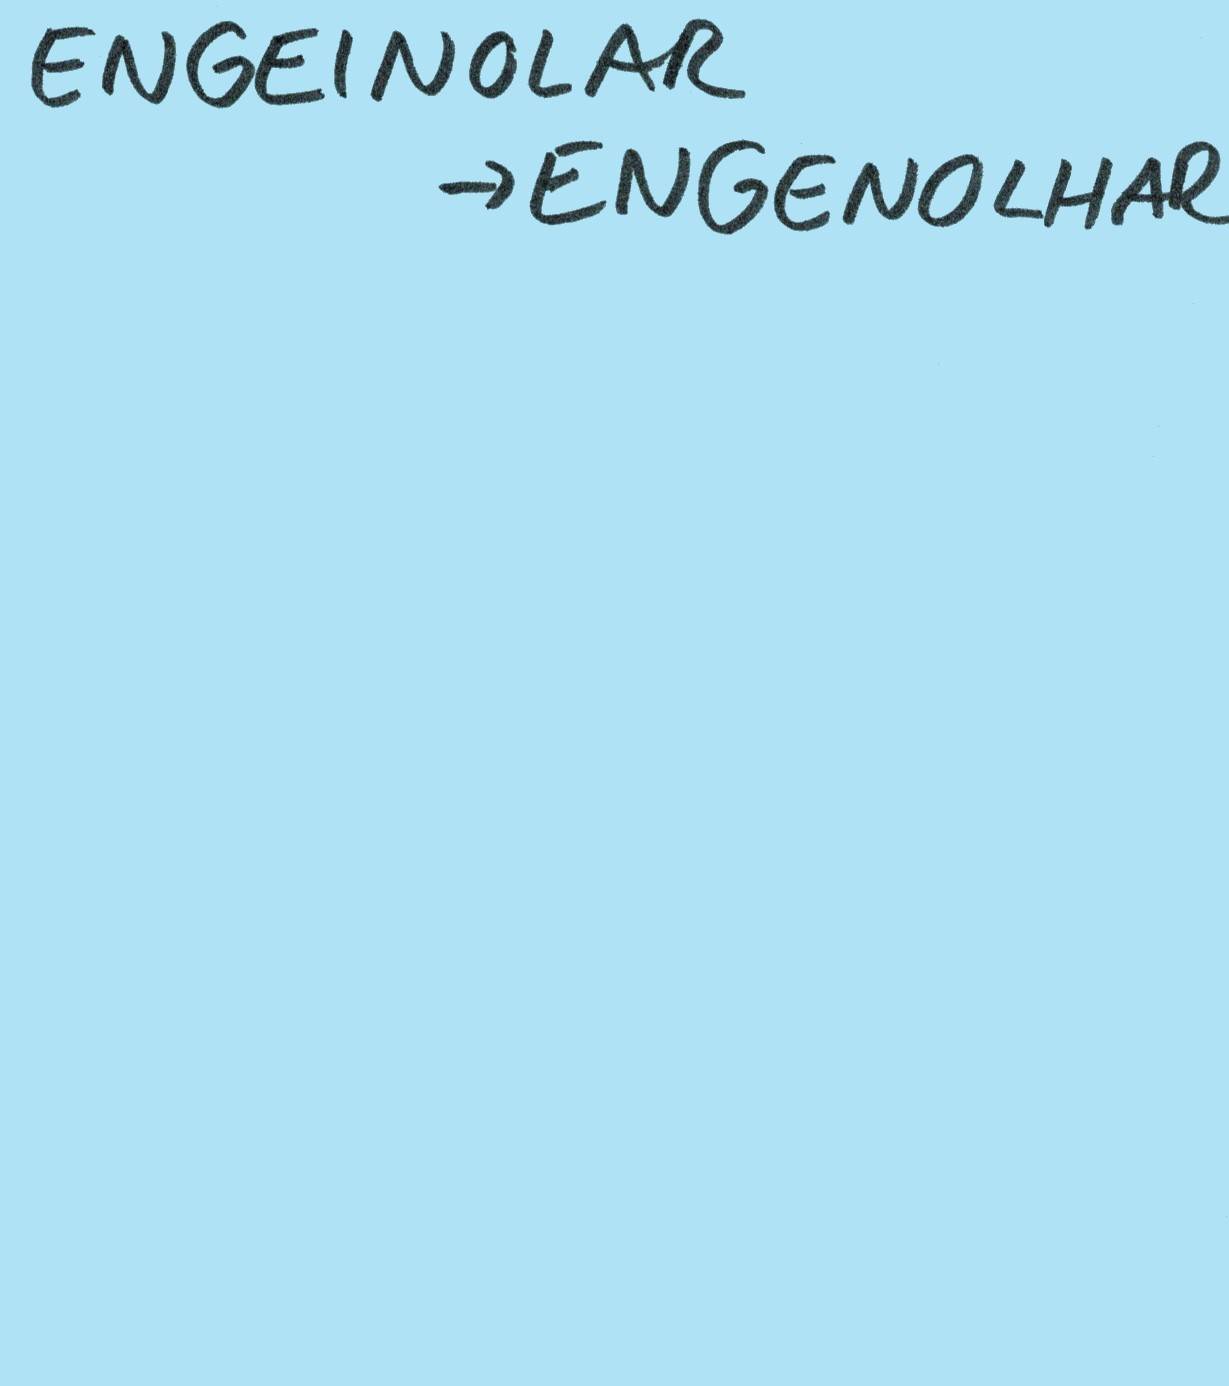 ENGEINOLAR
→ENGENOLHAR